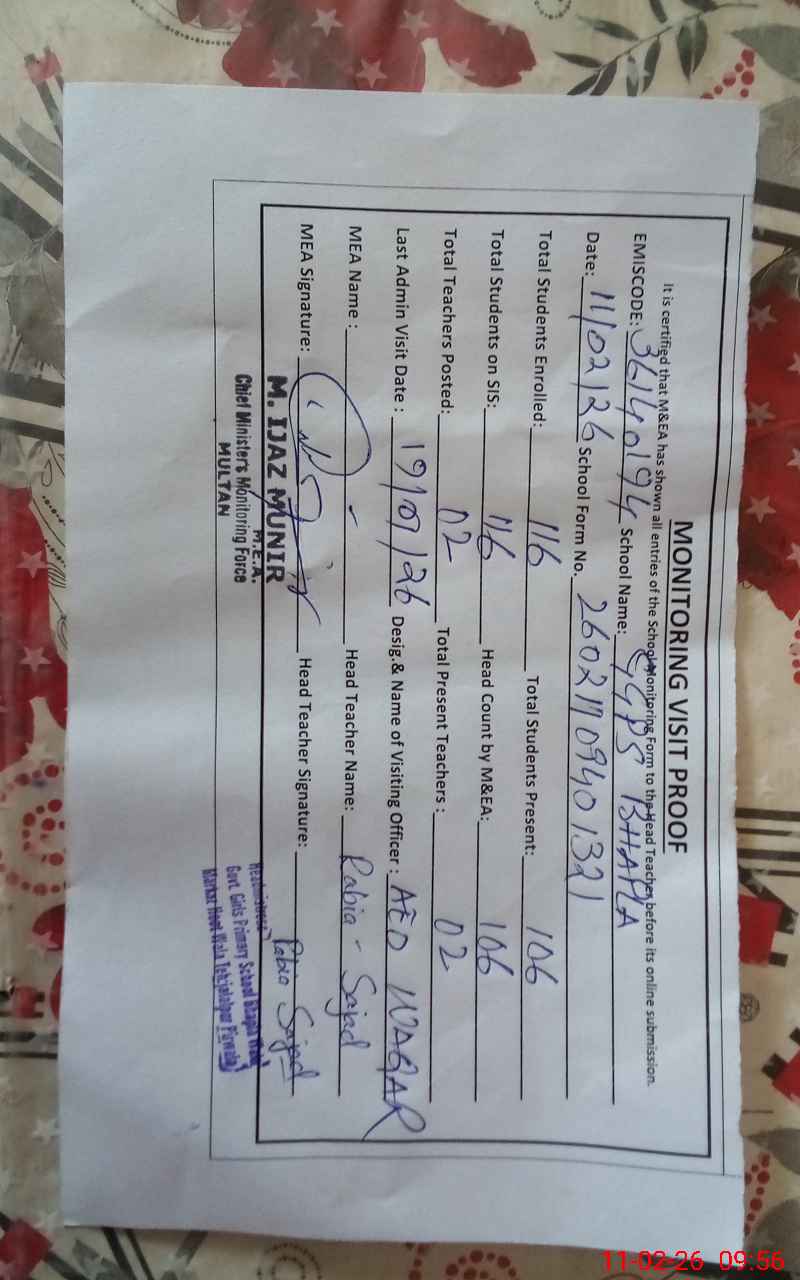 MONITORING VISIT PROOF
It is certified that M&EA has shown all entries of the School Monitoring Form to the Head Teacher before its online submission.
EMISCODE: 36140194 School Name: GGPS BHAPLA
Date: 11/02/26 School Form No. 26021109401321
Total Students Enrolled: 116 Total Students Present: 106
Total Students on SIS: 116 Head Count by M&EA: 106
Total Teachers Posted: 02 Total Present Teachers : 02
Last Admin Visit Date : 19/01/26 Desig.& Name of Visiting Officer : AEO WAQAR
MEA Name : Head Teacher Name: Rabia - Sajad
MEA Signature: Head Teacher Signature: Rabia Sajad
M. IJAZ MUNIR
M.E.A.
Chief Minister's Monitoring Force
MULTAN
Headmistress
Govt. Girls Primary School Bhapla
Markaz Wala Teh; Jalalpur Pirwala
11-02-26 09:56